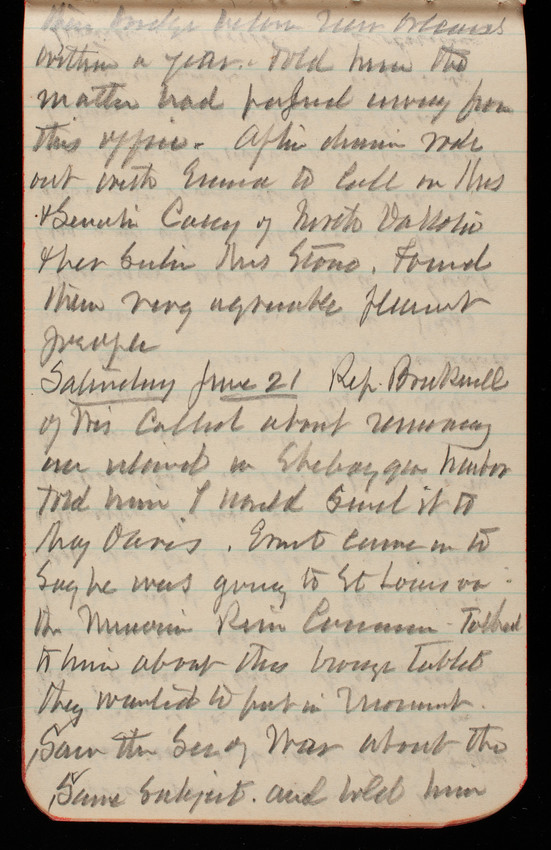 their bridge below New Orleans
within a year. Told him the
matter had passed away from
this office. After dinner rode
out with Emma to call on Mrs
& Senator Casey of North Dakota
& her sister Mrs Stone. Found
them very agreeable pleasant
people
Saturday June 21 Rep. Brickwell
of Wis Called about removing
an island in Sheboygan harbor
Told him I would send it to
Maj Davis. Ernst came in to
say he was going to St Louis on
the Missouri River Commission Talked
to him about the bronze tablet
they wanted to put in Monument.
Saw the Sec of War about the
Same Subject. and told him